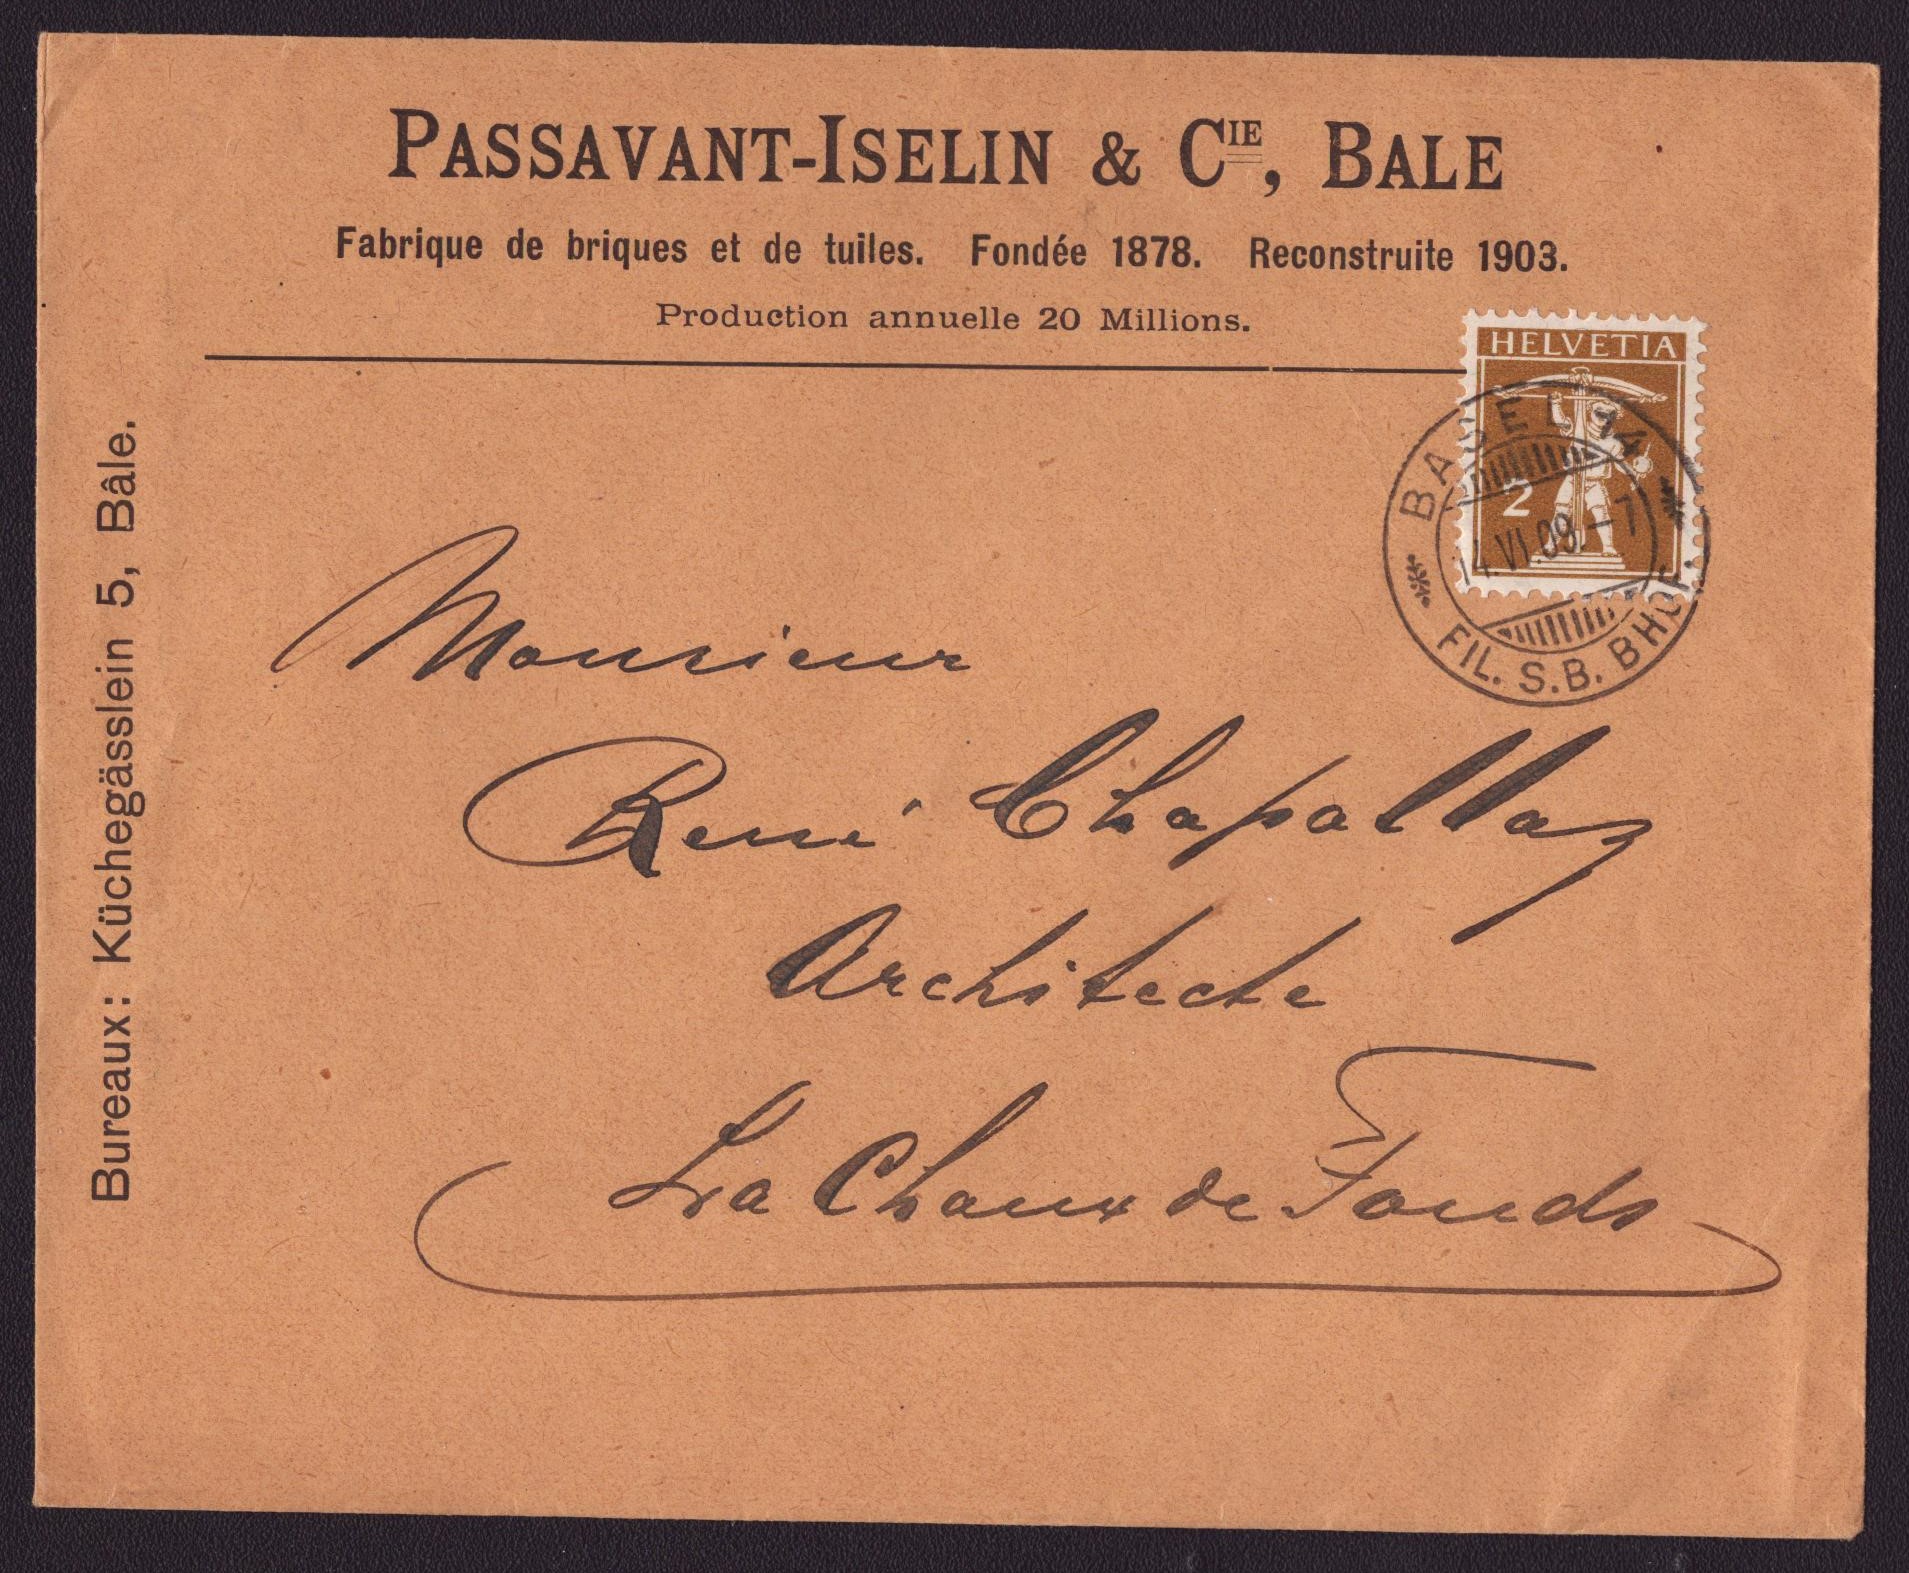 PASSAVANT-ISELIN & CIE, BALE
Fabrique de briques et de tuiles. Fondée 1878. Reconstruite 1903.
Production annuelle 20 Millions.
HELVETIA
2
BASEL 14
14.VI.09.–7
FIL. S.B. BHOF.
Bureaux: Küchegässlein 5, Bâle.
Monsieur
René Chapallaz
Architecte
La Chaux de Fonds